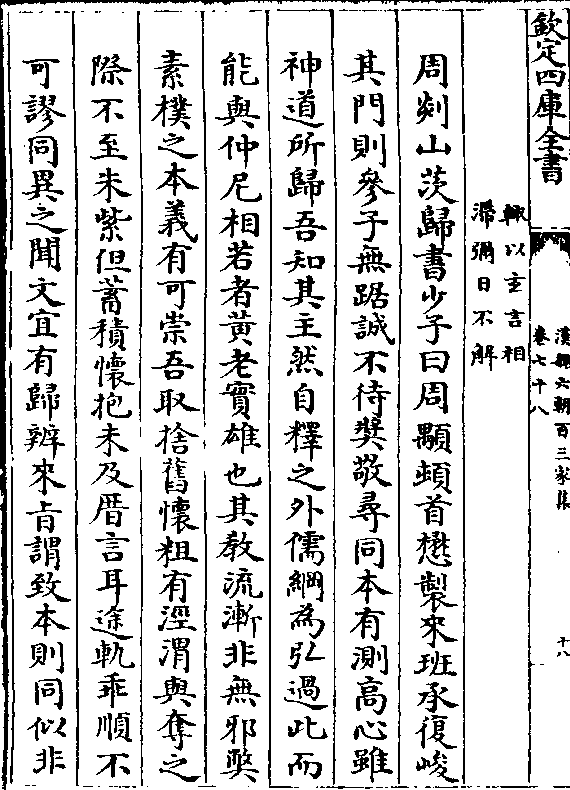 欽定四庫全書
漢魏六朝百三家集
卷七十八
十八
輒以主言相
滯彌日不解
周剡山茨歸書少子曰周顒頓首懋製來班承復峻
其門則參子無踞誠不待奬敬尋同本有測高心雖
神道所歸吾知其主然自釋之外儒綱為弘過此而
能與仲尼相若者黄老實雄也其教流漸非無邪弊
素樸之本義有可崇吾取捨舊懷粗有涇渭與奪之
際不至朱紫但蓄積懷抱未及厝言耳途軌乖順不
可謬同異之聞文宜有歸辨來㫖謂致本則同似非